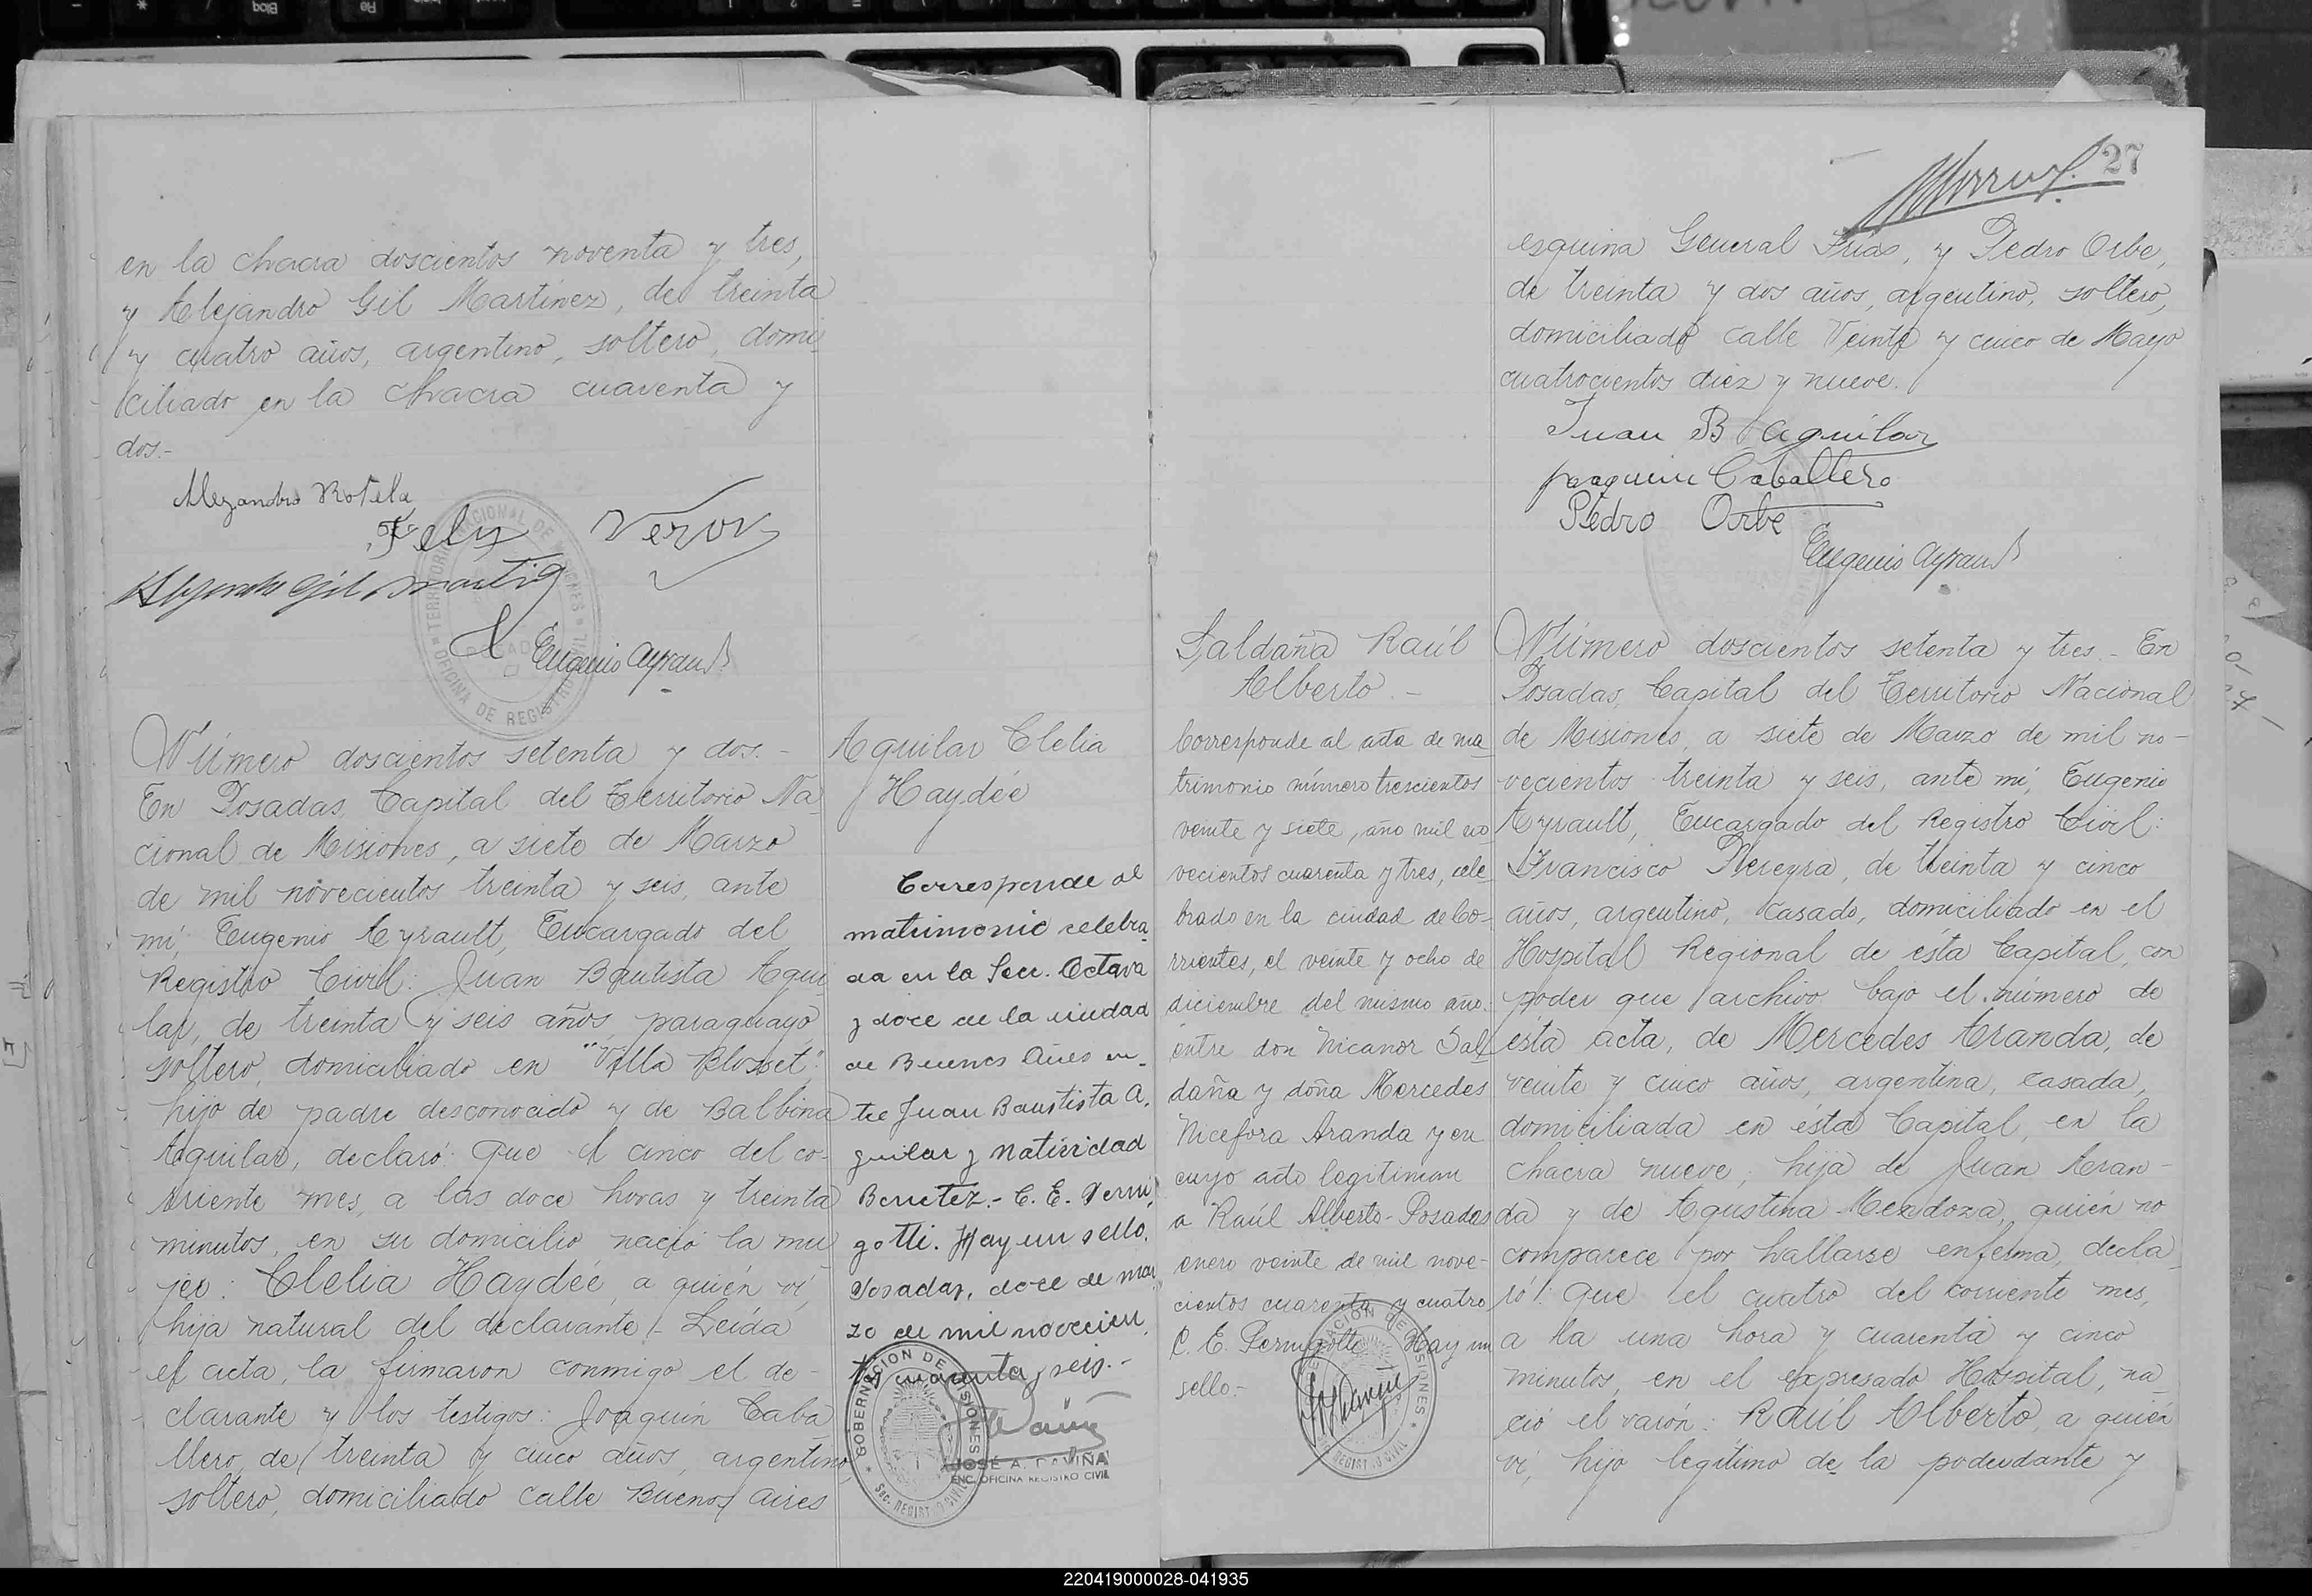 en la chacra doscientos noventa y tres,
y Alejandro Gil Martínez, de treinta
y cuatro años, argentino, soltero, domi-
ciliado en la chacra cuarenta y
dos.-
Alejandro Rotela
Felix Veron
Alejandro Gil Martinez
Eugenio Ayrault
TERRITORIO NACIONAL DE MISIONES
OFICINA DE REGISTRO CIVIL
POSADAS
Número doscientos setenta y dos.-
En Posadas, Capital del Territorio Na-
cional de Misiones, a siete de Marzo
de mil novecientos treinta y seis, ante
mí, Eugenio Ayrault, Encargado del
Registro Civil: Juan Bautista Agui-
lar, de treinta y seis años, paraguayo,
soltero, domiciliado en "Villa Blosset"
hijo de padre desconocido y de Balbina
Aguilar, declaró: Que el cinco del co-
rriente mes, a las doce horas y treinta
minutos, en su domicilio nació la mu-
jer: Clelia Haydée, a quién ví,
hija natural del declarante.- Leída
el acta, la firmaron conmigo el de-
clarante y los testigos: Joaquín Caba-
llero, de treinta y cinco años, argentino,
soltero, domiciliado calle Buenos Aires
Aguilar Clelia
Haydée
Corresponde al
matrimonio celebra-
do en la Secc. Octava
y doce de la ciudad
de Buenos Aires en-
tre Juan Baustista A.
guilar y Natividad
Benitez.- C. E. Perni
gotti. Hay un sello.
Posadas, doce de mar
zo de mil novecien
tos cuarenta y seis.-
GOBERNACION DE MISIONES
Sec. REGISTRO CIVIL
JOSÉ A. DAVIÑA
ENC. OFICINA REGISTRO CIVIL
27
esquina General Frías, y Pedro Orbe,
de treinta y dos años, argentino, soltero,
domiciliado calle Veinte y cinco de Mayo
cuatrocientos diez y nueve.
Juan B Aguilar
Joaquin Caballero
Pedro Orbe
Eugenio Ayrault
Saldaña Raúl
Alberto.-
Corresponde al acta de ma
trimonio número trescientos
veinte y siete, año mil no
vecientos cuarenta y tres, cele-
brado en la ciudad de Co-
rrientes, el veinte y ocho de
diciembre del mismo año.
entre don Nicanor Sal
daña y doña Mercedes
Nicefora Aranda y en
cuyo acto legitiman
a Raúl Alberto- Posadas
enero veinte de mil nove-
cientos cuarenta y cuatro
C. E. Pernigotti Hay un
sello.-
GOBERNACION DE MISIONES
Sec. REGISTRO CIVIL
Número doscientos setenta y tres.- En
Posadas, Capital del Territorio Nacional
de Misiones, a siete de Marzo de mil no-
vecientos treinta y seis, ante mí, Eugenio
Ayrault, Encargado del Registro Civil:
Francisco Pereyra, de treinta y cinco
años, argentino, casado, domiciliado en el
Hospital Regional de ésta Capital, con
poder que archivo bajo el número de
ésta acta, de Mercedes Aranda, de
veinte y cinco años, argentina, casada,
domiciliada en ésta Capital, en la
chacra nueve, hija de Juan Aran-
da y de Agustina Mendoza, quién no
comparece por hallarse enferma, decla-
ró: Que el cuatro del corriente mes,
a la una hora y cuarenta y cinco
minutos, en el expresado Hospital, na-
ció el varón: Raúl Alberto, a quién
ví, hijo legítimo de la poderdante y
220419000028-041935